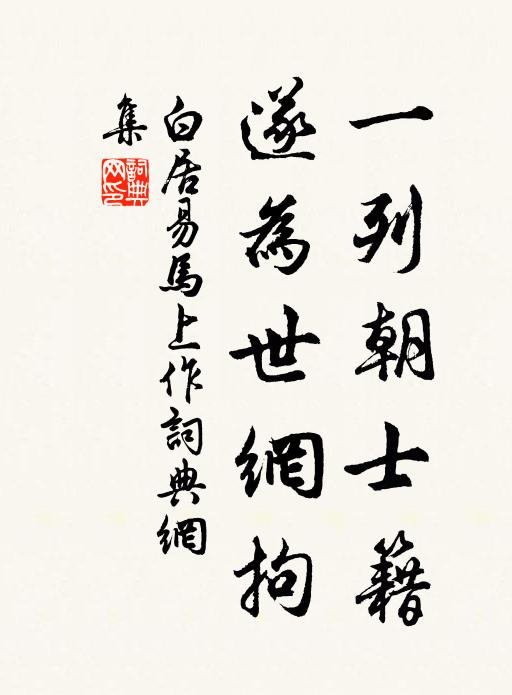 一列朝士籍
遂為世網拘
白居易馬上作詞典網
集
詞典
網印